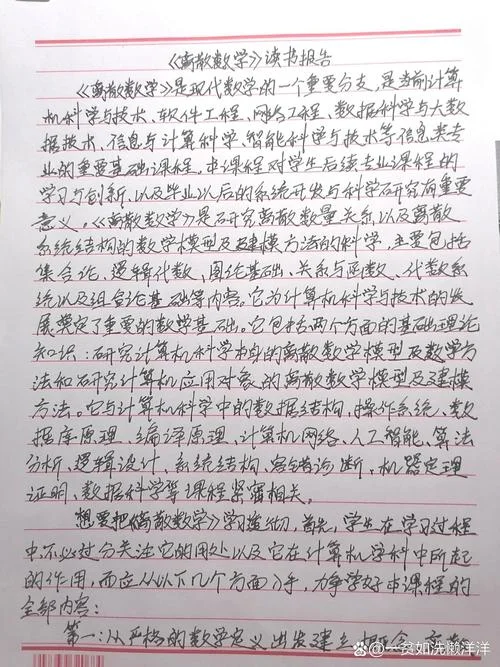 《离散数学》读书报告
《离散数学》是现代数学的一个重要分支，是当前计算
机科学与技术、软件工程、网络工程、数据科学与大数
据技术、信息与计算科学、智能科学与技术等信息类专
业的重要基础课程。本课程对学生后续专业课程的
学习与创新、以及毕业以后的系统开发与科学研究有重要
意义。《离散数学》是研究离散数量关系以及离散
系统结构的数学模型及建模方法的科学，主要包括
集合论、逻辑代数、图论基础、关系与函数、代数系
统以及组合论基础等内容。它为计算机科学与技术的发
展奠定了重要的数学基础。它包括两个方面的基础理论
知识：研究计算机科学本身的离散数学模型及数学方
法和研究计算机应用对象的离散数学模型及建模
方法。它与计算机科学中的数据结构、操作系统、数
据库原理、编译原理、计算机网络、人工智能、算法
分析、逻辑设计、系统结构、容错诊断、机器定理
证明、数据科学等课程紧密相关。
想要把《离散数学》学习透彻，首先，学生在学习过程
中不必过分关注它的用处以及它在计算机学科中所起
的作用，而应从以下几个方面入手，力争学好本课程的
全部内容：
第一：从严格的数学定义出发建立概念
头条 @一贫如洗懒洋洋